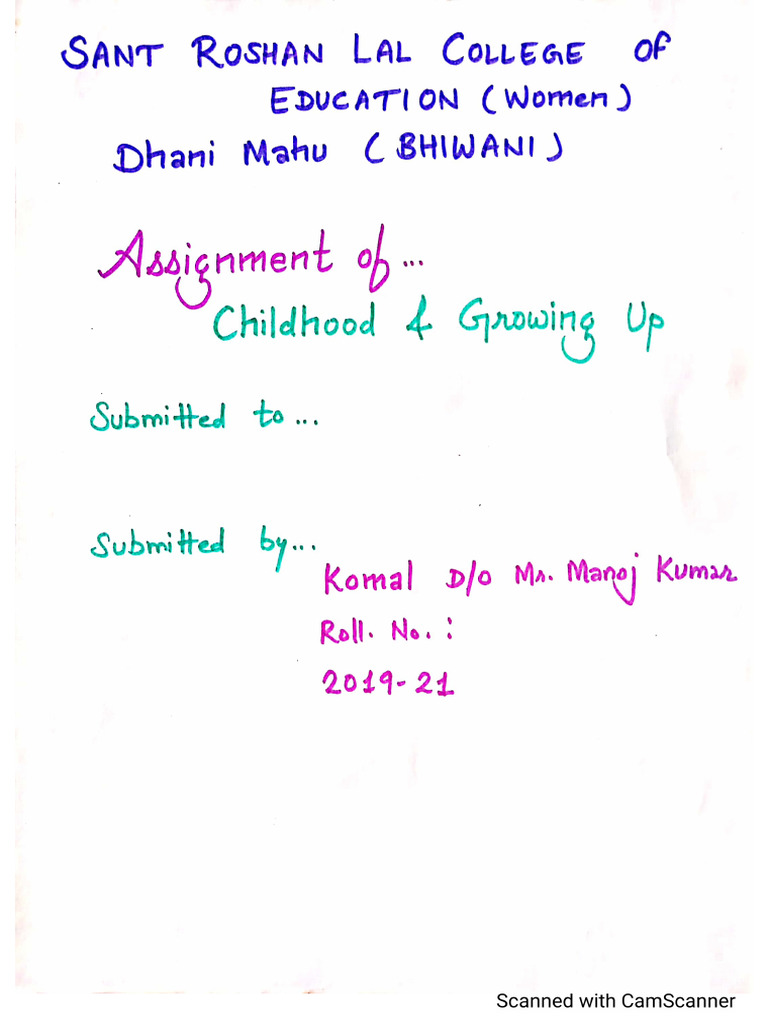 SANT ROSHAN LAL COLLEGE OF
EDUCATION (Women)
Dhani Mahu (BHIWANI)
Assignment of...
Childhood & Growing Up
Submitted to...
Submitted by...
Komal D/O Mr. Manoj Kumar
Roll. No. :
2019-21
Scanned with CamScanner